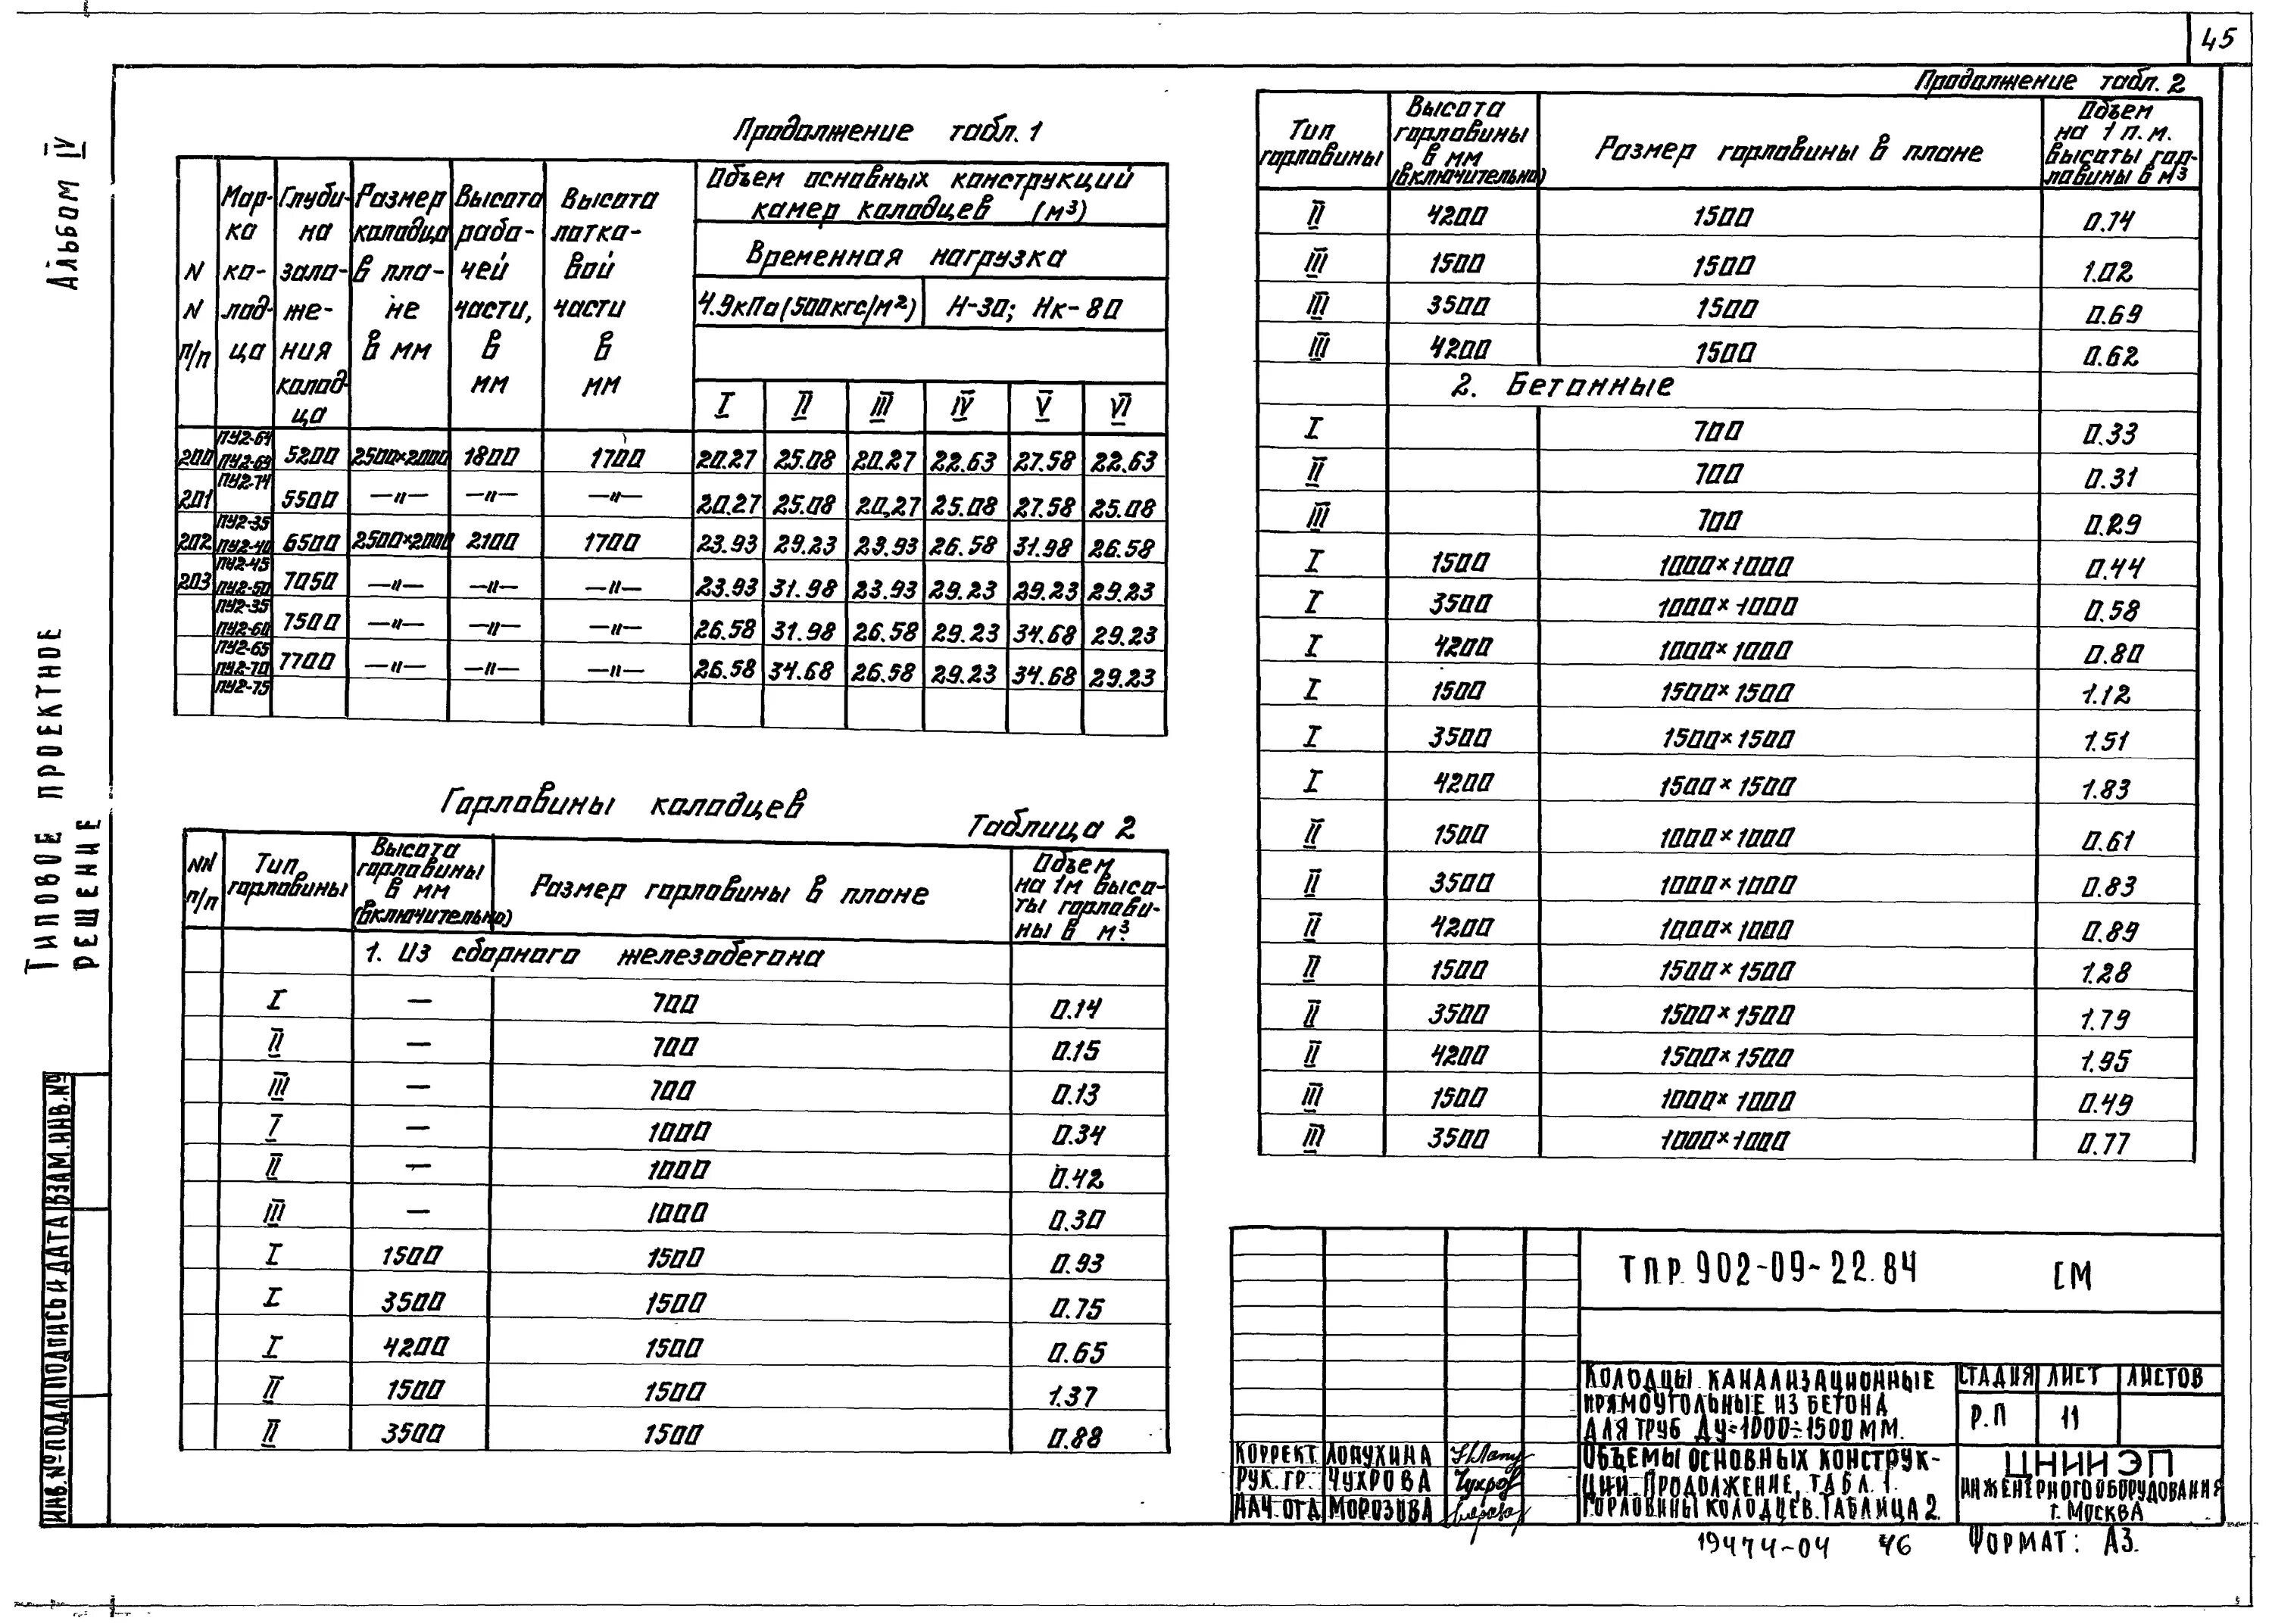 45
Альбом IV
Типовое проектное
решение
ИНВ.№ПОДЛ ПОДПИСЬ И ДАТА ВЗАМ.ИНВ.№
Продолжение табл. 1
N N п/п | Марка колодца | Глубина заложения колодца | Размер колодца в плане в мм | Высота рабочей части, в мм | Высота лотковой части в мм | Объем основных конструкций камер колодцев (м³)
Временная нагрузка
4.9кПа (500кгс/м²) | Н-30; Нк-80
I | II | III | IV | V | VI
ПУ2-64
200 | ПУ2-69 | 5200 | 2500×2000 | 1800 | 1700 | 20.27 | 25.08 | 20.27 | 22.63 | 27.58 | 22.63
ПУ2-74
201 | 5500 | —"— | —"— | —"— | 20.27 | 25.08 | 20,27 | 25.08 | 27.58 | 25.08
ПУ2-35
202 | ПУ2-40 | 6500 | 2500×2000 | 2100 | 1700 | 23.93 | 29.23 | 23.93 | 26.58 | 31.98 | 26.58
ПУ2-45
203 | ПУ2-50 | 7050 | —"— | —"— | —"— | 23.93 | 31.98 | 23.93 | 29.23 | 29.23 | 29.23
ПУ2-35
ПУ2-60 | 7500 | —"— | —"— | —"— | 26.58 | 31.98 | 26.58 | 29.23 | 34.68 | 29.23
ПУ2-65
ПУ2-70 | 7700 | —"— | —"— | —"— | 26.58 | 34.68 | 26.58 | 29.23 | 34.68 | 29.23
ПУ2-75
Горловины колодцев
Таблица 2
NN п/п | Тип горловины | Высота горловины в мм (включительно) | Размер горловины в плане | Объем на 1м высоты горловины в м³.
1. Из сборного железобетона
I | — | 700 | 0.14
II | — | 700 | 0.15
III | — | 700 | 0.13
I | — | 1000 | 0.34
II | — | 1000 | 0.42
III | — | 1000 | 0.30
I | 1500 | 1500 | 0.93
I | 3500 | 1500 | 0.75
I | 4200 | 1500 | 0.65
II | 1500 | 1500 | 1.37
II | 3500 | 1500 | 0.88
Продолжение табл. 2
Тип горловины | Высота горловины в мм (включительно) | Размер горловины в плане | Объем на 1 п.м. высоты горловины в м³
II | 4200 | 1500 | 0.74
III | 1500 | 1500 | 1.02
III | 3500 | 1500 | 0.69
III | 4200 | 1500 | 0.62
2. Бетонные
I | 700 | 0.33
II | 700 | 0.31
III | 700 | 0.29
I | 1500 | 1000×1000 | 0.44
I | 3500 | 1000×1000 | 0.58
I | 4200 | 1000×1000 | 0.80
I | 1500 | 1500×1500 | 1.12
I | 3500 | 1500×1500 | 1.51
I | 4200 | 1500×1500 | 1.83
II | 1500 | 1000×1000 | 0.61
II | 3500 | 1000×1000 | 0.83
II | 4200 | 1000×1000 | 0.89
II | 1500 | 1500×1500 | 1.28
II | 3500 | 1500×1500 | 1.79
II | 4200 | 1500×1500 | 1.95
III | 1500 | 1000×1000 | 0.49
III | 3500 | 1000×1000 | 0.77
ТПР 902-09-22.84 СМ
КОЛОДЦЫ КАНАЛИЗАЦИОННЫЕ
ПРЯМОУГОЛЬНЫЕ ИЗ БЕТОНА
ДЛЯ ТРУБ ДУ=1000÷1500 ММ.
СТАДИЯ | ЛИСТ | ЛИСТОВ
Р.П | 11
КОРРЕКТ. ЛОПУХИНА
РУК. ГР. ЧУХРОВА
НАЧ. ОТД МОРОЗОВА
ОБЪЕМЫ ОСНОВНЫХ КОНСТРУК-
ЦИЙ. ПРОДОЛЖЕНИЕ, ТАБЛ. 1.
ГОРЛОВИНЫ КОЛОДЦЕВ. ТАБЛИЦА 2.
ЦНИИЭП
ИНЖЕНЕРНОГО ОБОРУДОВАНИЯ
г. МОСКВА
19474-04 46
ФОРМАТ: А3.